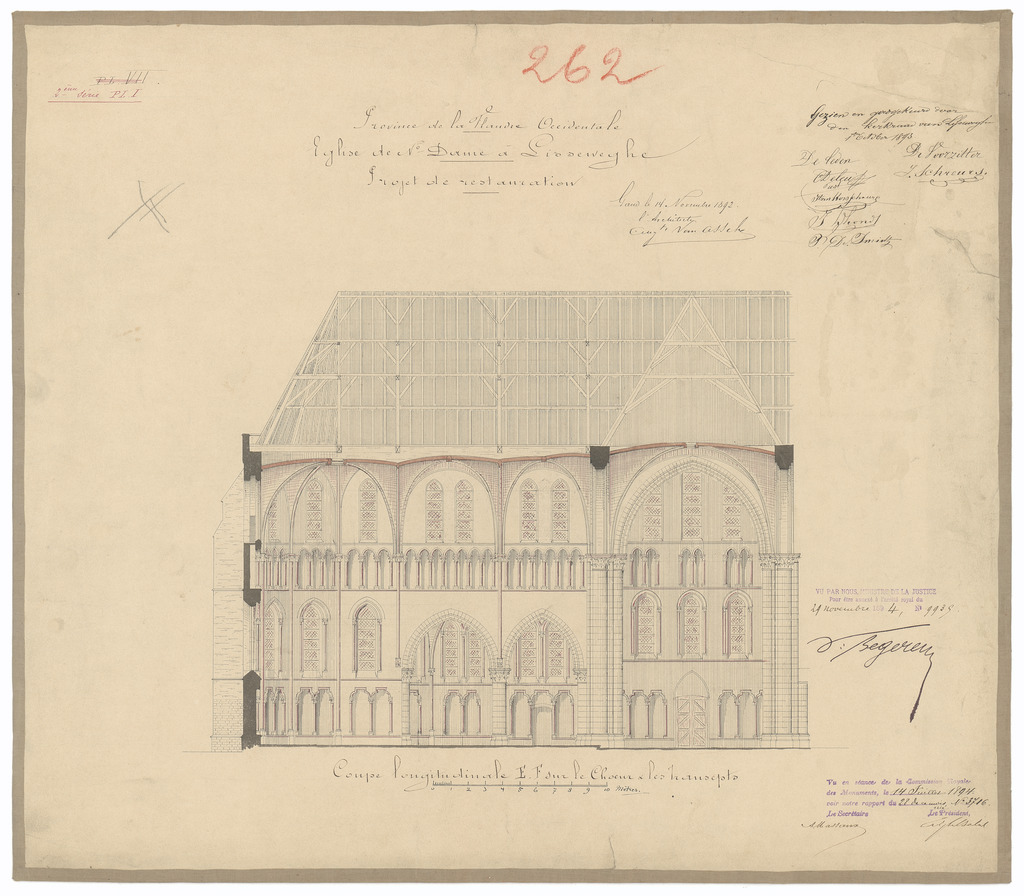 262
Pl. VII
2ème Série Pl. I
Province de la Flandre Occidentale
Eglise de N. Dame à Lisseweghe
Projet de restauration
Gand le 14 Novembre 1893
l'Architecte
Aug. Van Assche
Gezien en goedgekeurd door
den kerkraad van Lisseweghe
1 October 1893
De leden
De Voorzitter
J. Schreurs
P. De Smidt
VU PAR NOUS, MINISTRE DE LA JUSTICE
Pour être annexé à l'arrêté royal du
29 novembre 1894, N 9935
V. Begerem
Coupe longitudinale E.F sur le Choeur & les transepts
0 1 2 3 4 5 6 7 8 9 10 Mètres
Vu en séance de la Commission Royale
des Monuments, le 14 Juillet 1894
voir notre rapport du 22 N° 3716
Le Secrétaire Le Président,
A. Massaux